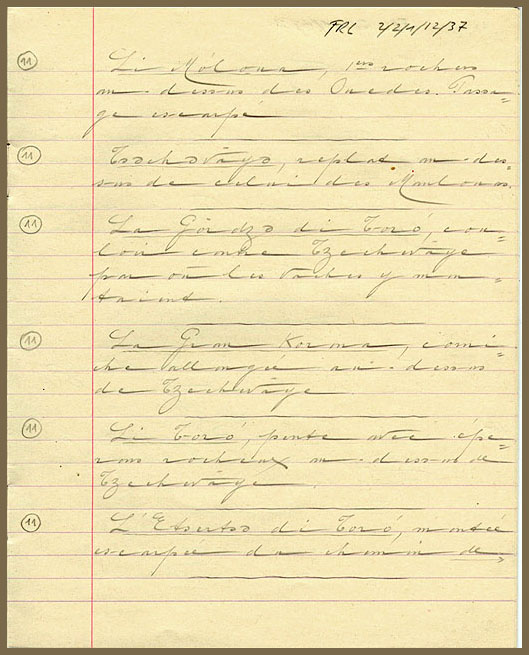 FRC 2/2/1/12/37
11 Li Mólona, 1ers rochers
au-dessus des Ouedes. Passa-
ge escarpé
11 replat au-des-
sus de celui des
11 La Gördzə di Toró, cou-
loir entre Tzechvâge
par où les vaches y mon-
taient.
11 La Gran Korona, corni-
che allongée au-dessus
de Tzechvâge
11 Li Toró, pente avec épe-
rons rocheux au-dessus de
Tzechvâge.
11 L'Etsertsə di Toró, montée
escarpée du chemin de